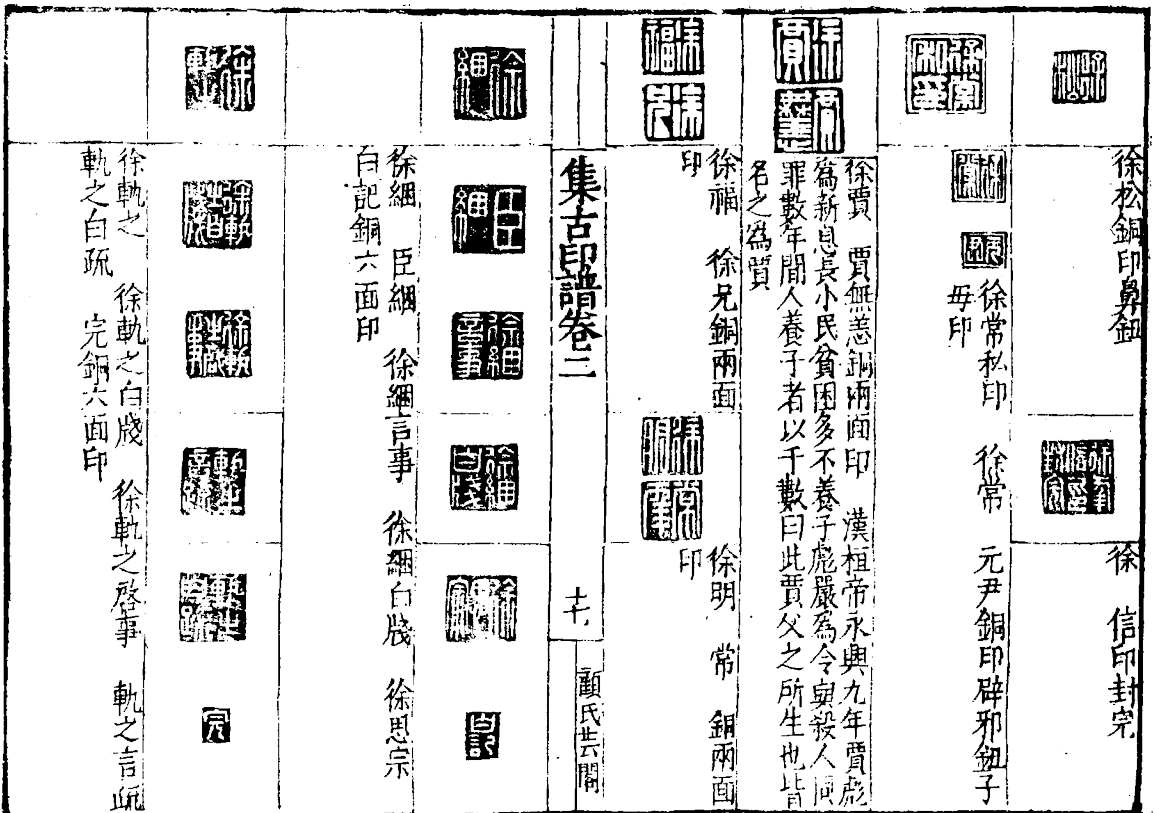 徐松銅印鼻鈕
徐 信印封完
徐常私印 徐常 元尹銅印辟邪鈕子
毋印
徐賈 賈無恙銅兩面印 漢桓帝永興九年賈彪
為新息長小民貧困多不養子彪嚴為令與殺人同
罪數年間人養子者以千數曰此賈父之所生也皆
名之為賈
徐福 徐兄銅兩面
印
徐明 常 銅兩面
印
集古印譜卷三
十七
顧氏芸閣
徐綑 臣綑 徐綑言事 徐綑白牋 徐思宗
白記銅六面印
徐軌之 徐軌之白牋 徐軌之啓事 軌之言疏
軌之白疏 完銅六面印